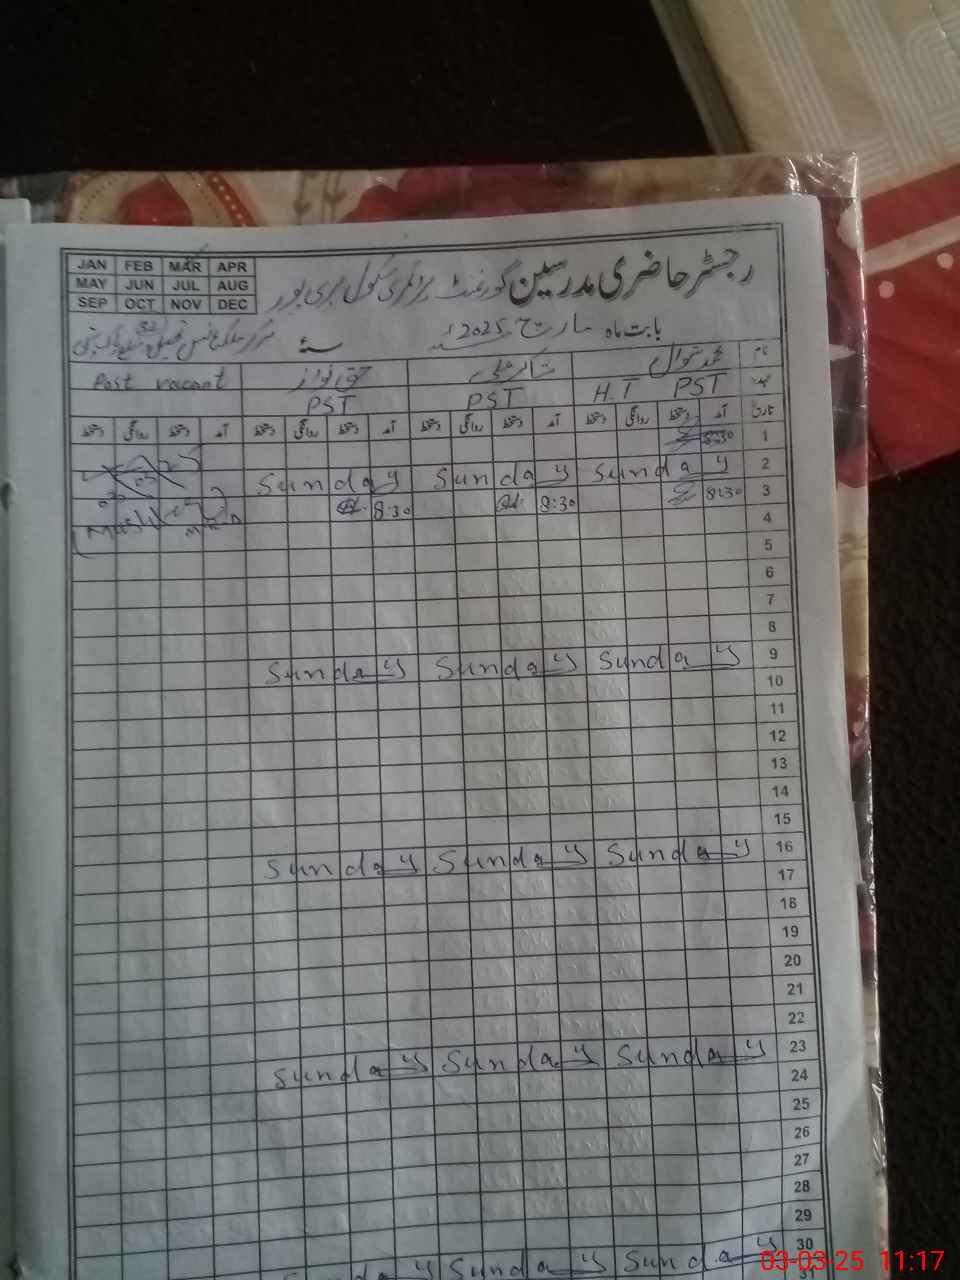 JAN FEB MAR APR
MAY JUN JUL AUG
SEP OCT NOV DEC
رجسٹر حاضری مدرسین گورنمنٹ پرائمری سکول
بابت ماہ مارچ 2025ء
نام
Post vacant حق نواز شاکر علی محمد
PST PST H.T PST
تاریخ
آمد دستخط روانگی دستخط آمد دستخط روانگی دستخط آمد دستخط روانگی دستخط آمد دستخط روانگی دستخط
8:30 1
Sunday Sunday Sunday 2
8:30 8:30 8:30 3
4
5
6
7
8
Sunday Sunday Sunday 9
10
11
12
13
14
15
Sunday Sunday Sunday 16
17
18
19
20
21
22
Sunday Sunday Sunday 23
24
25
26
27
28
29
Sunday Sunday Sunday 30
31
03-03-25 11:17